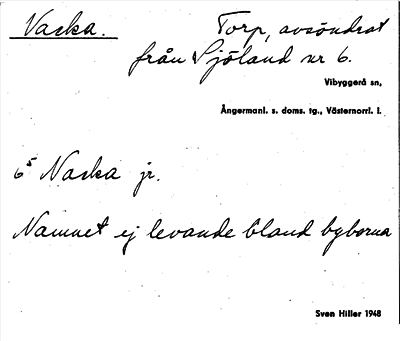 Vaska. Torp, avsöndrat
från Sjöland nr 6.
Vibyggerå sn,
Ångermanl. s. doms. tg., Västernorrl. l.
6⁵ Vaska jr.
Namnet ej levande bland byborna
Sven Hiller 1948